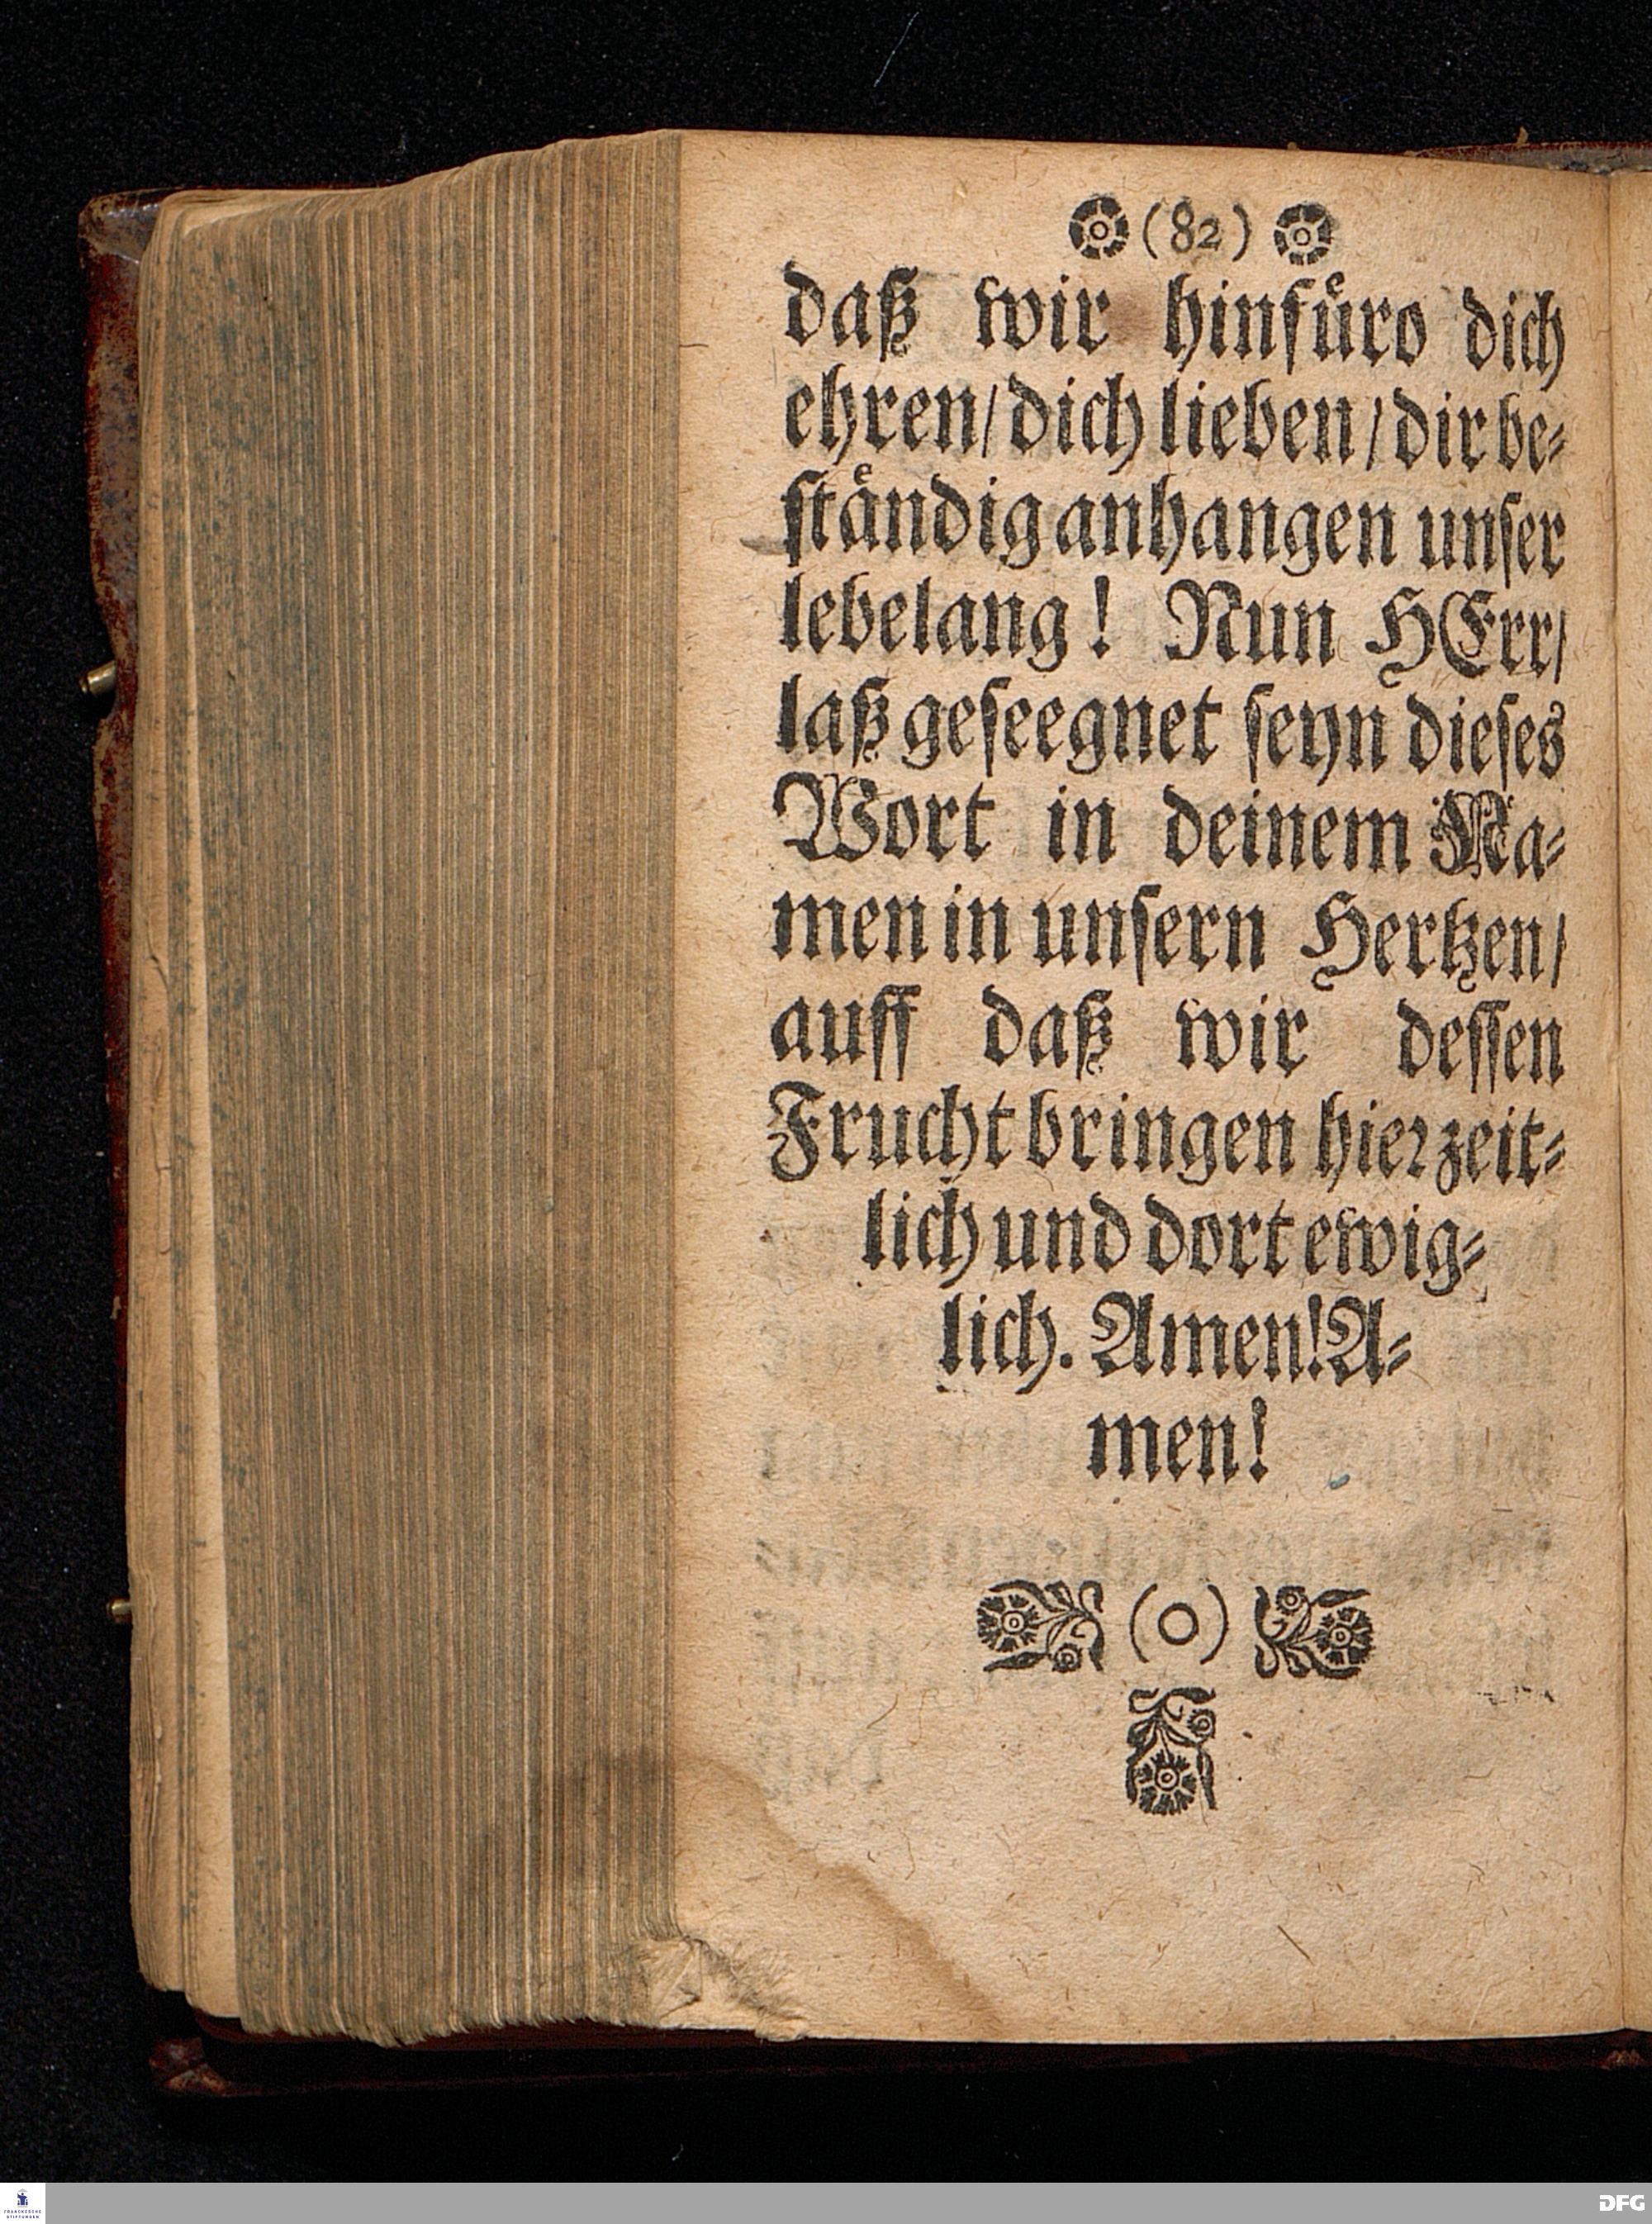 (82)
daß wir hinfuͤro dich
ehren/ dich lieben/ dir be⸗
ſtaͤndig anhangen unſer
lebelang! Nun HErr/
laß geſeegnet ſeyn dieſes
Wort in deinem Na⸗
men in unſern Hertzen/
auff daß wir deſſen
Frucht bringen hier zeit⸗
lich und dort ewig⸗
lich. Amen! A⸗
men!
(o)
FRANCKESCHE
STIFTUNGEN
DFG